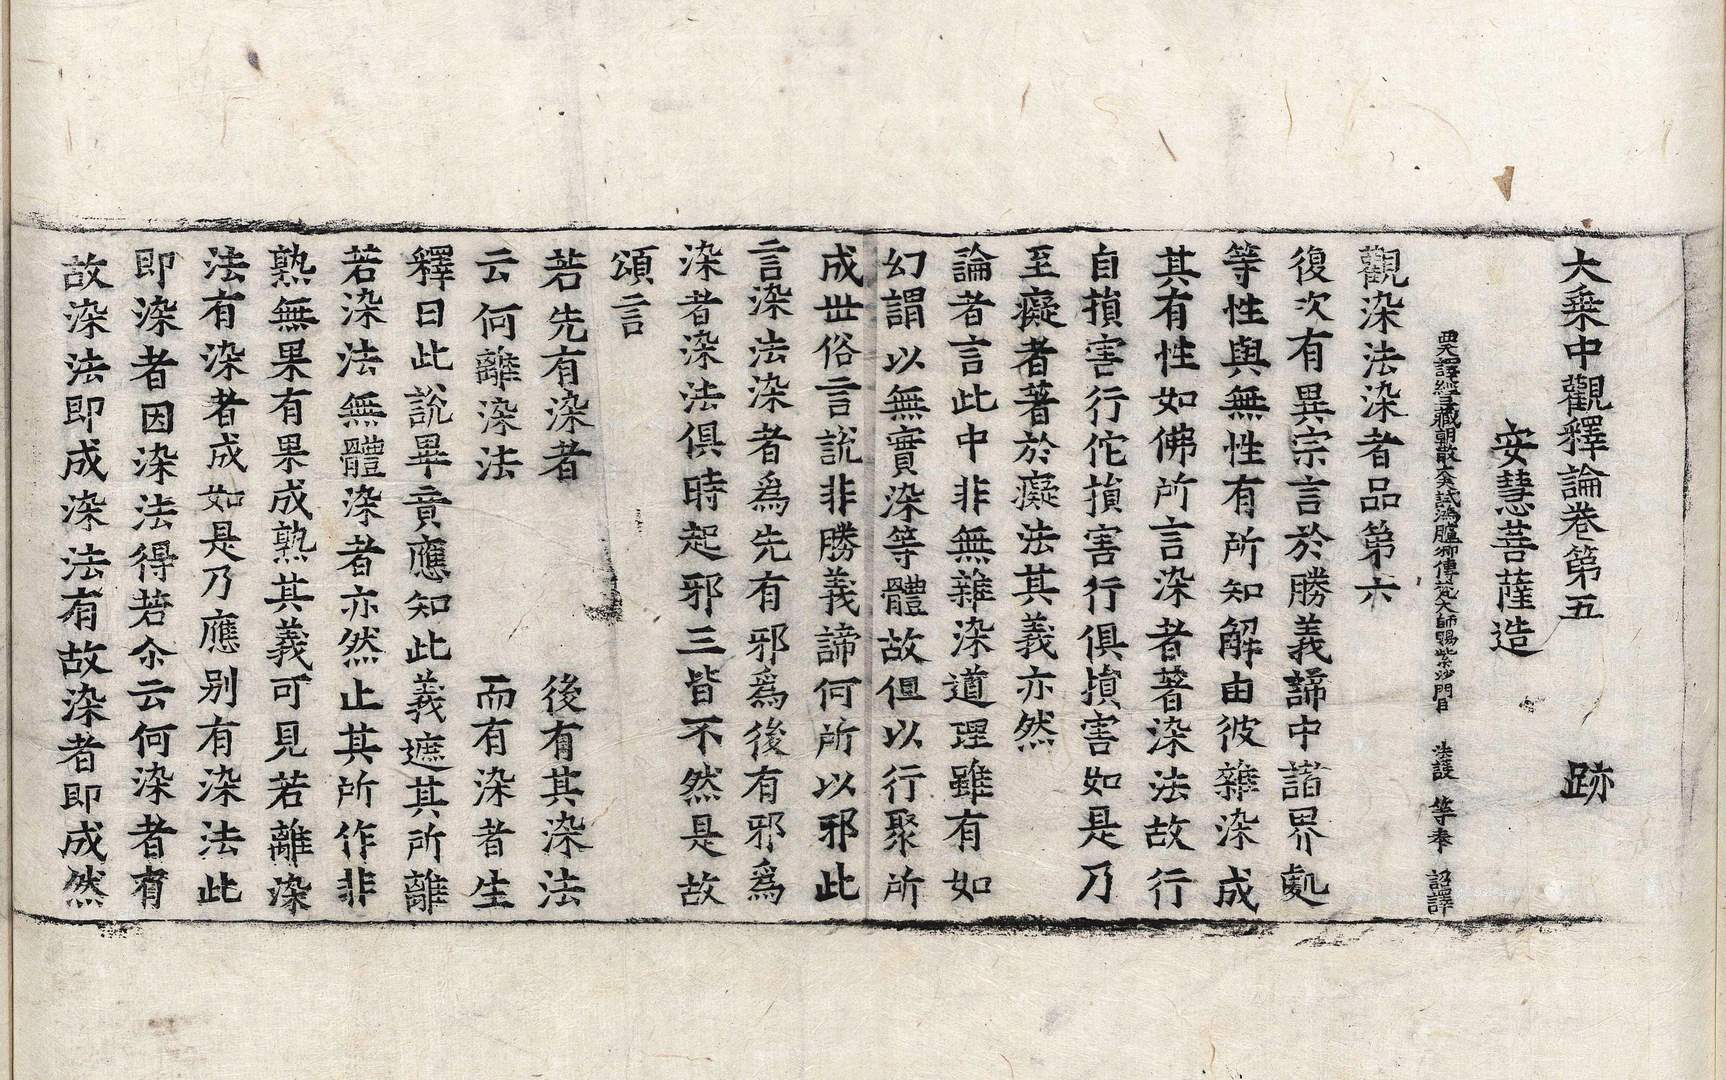 大乘中觀釋論卷第五　跡
安慧菩薩造
西天譯經三藏朝散大夫試鴻臚卿傳梵大師賜紫沙門臣　法護　等奉　詔譯
觀染法染者品第六
復次有異宗言於勝義諦中諸界處
等性與無性有所知解由彼雜染成
其有性如佛所言染者著染法故行
自損害行佗損害行俱損害如是乃
至癡者著於癡法其義亦然
論者言此中非無雜染道理雖有如
幻謂以無實染等體故但以行聚所
成世俗言說非勝義諦何所以邪此
言染法染者為先有邪為後有邪為
染者染法俱時起邪三皆不然是故
頌言
若先有染者　後有其染法
云何離染法　而有染者生
釋曰此說畢竟應知此義遮其所離
若染法無體染者亦然止其所作非
熟無果有果成熟其義可見若離染
法有染者成如是乃應別有染法此
即染者因染法得若尒云何染者有
故染法即成染法有故染者即成然